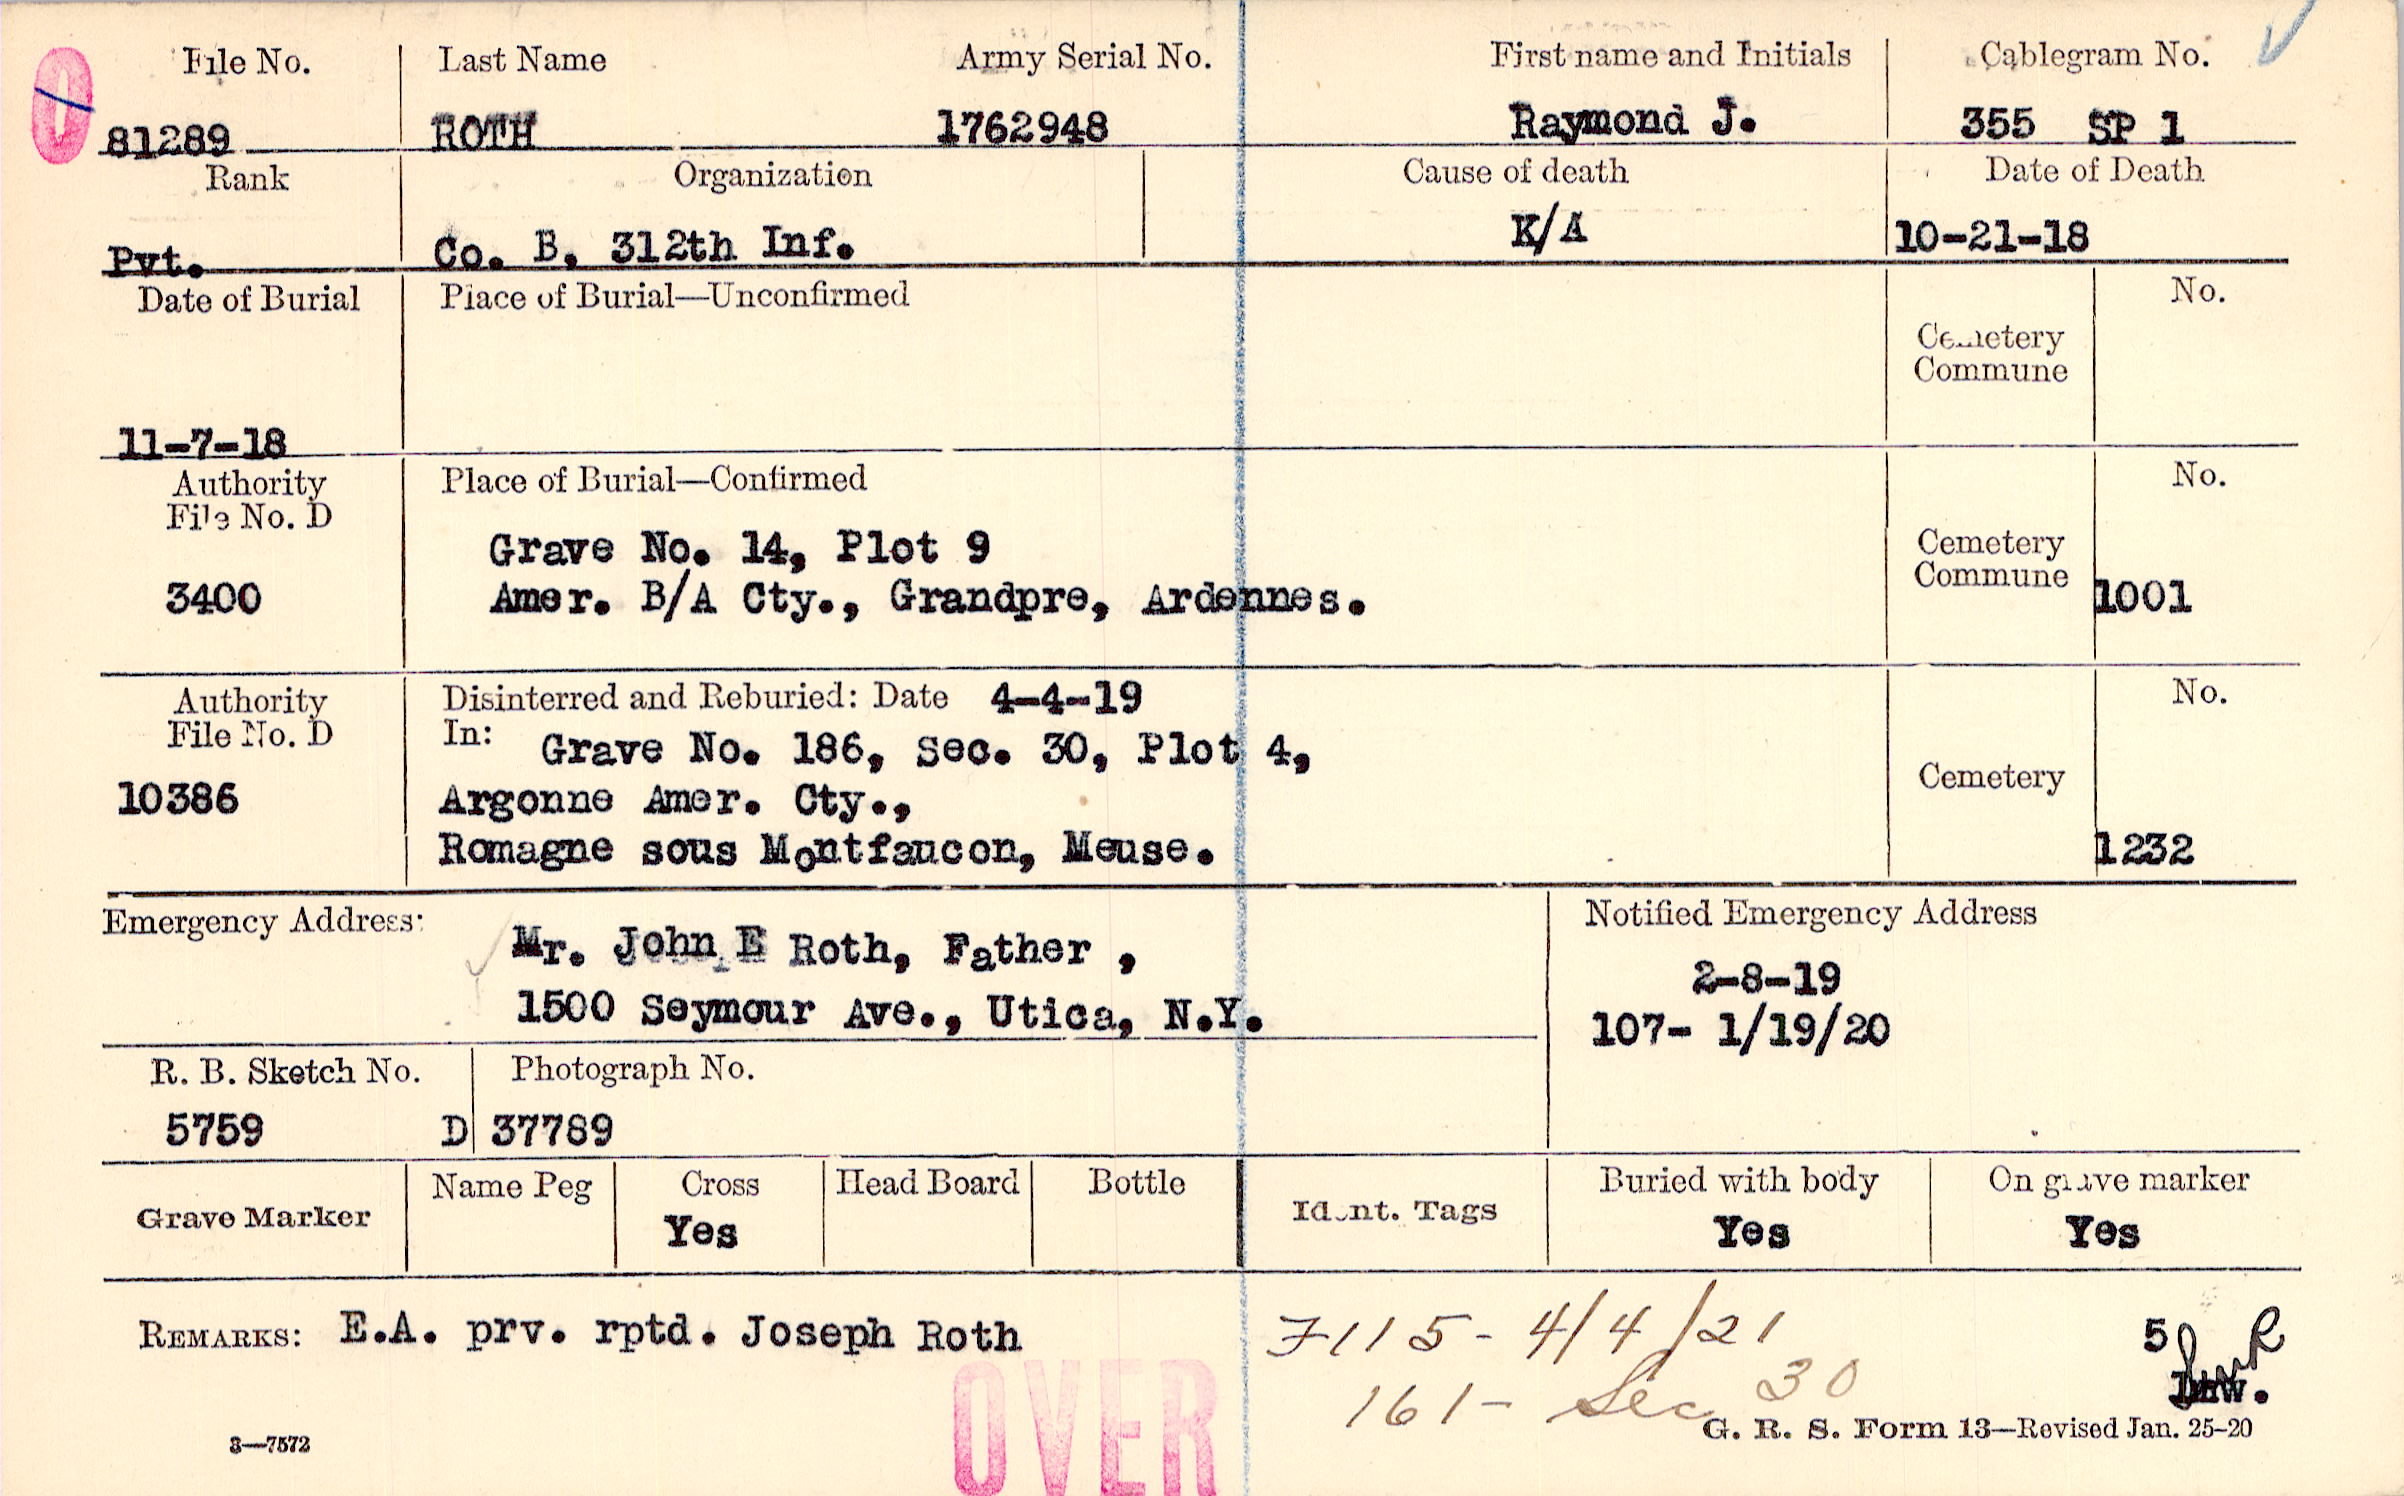 O
File No. Last Name Army Serial No. First name and Initials Cablegram No.
81289 ROTH 1762948 Raymond J. 355 SP 1
Rank Organization Cause of death Date of Death
Pvt. Co. B, 312th Inf. K/A 10-21-18
Date of Burial Place of Burial—Unconfirmed No.
Cemetery
Commune
11-7-18
Authority Place of Burial—Confirmed No.
File No. D
Grave No. 14, Plot 9
Cemetery
Commune
3400 Amer. B/A Cty., Grandpre, Ardennes. 1001
Authority Disinterred and Reburied: Date 4-4-19 No.
File No. D In: Grave No. 186, Sec. 30, Plot 4,
Cemetery
10386 Argonne Amer. Cty.,
Romagne sous Montfaucon, Meuse. 1232
Emergency Address: Notified Emergency Address
Mr. John E Roth, Father ,
2-8-19
1500 Seymour Ave., Utica, N.Y.
107- 1/19/20
R. B. Sketch No. Photograph No.
5759 D 37789
Grave Marker Name Peg Cross Head Board Bottle Ident. Tags Buried with body On grave marker
Yes Yes Yes
REMARKS: E.A. prv. rptd. Joseph Roth 7115-4/4/21 5
161- Sec 30
OVER
3—7572 G. R. S. Form 13—Revised Jan. 25-20